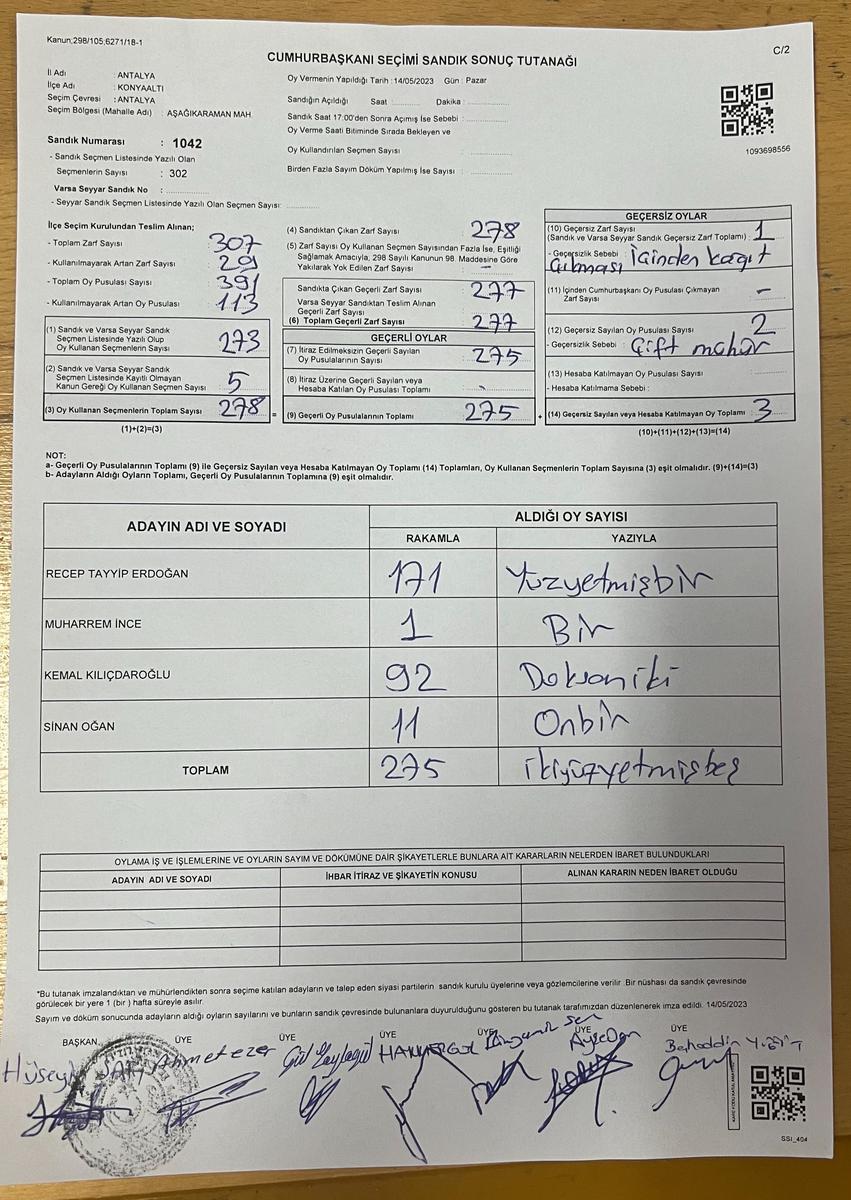 Kanun;298/105;6271/18-1
C/2
CUMHURBAŞKANI SEÇİMİ SANDIK SONUÇ TUTANAĞI
İl Adı : ANTALYA
İlçe Adı : KONYAALTI
Seçim Çevresi : ANTALYA
Seçim Bölgesi (Mahalle Adı) : AŞAĞIKARAMAN MAH.
Sandık Numarası : 1042
- Sandık Seçmen Listesinde Yazılı Olan
Seçmenlerin Sayısı : 302
Varsa Seyyar Sandık No :
- Seyyar Sandık Seçmen Listesinde Yazılı Olan Seçmen Sayısı:
Oy Vermenin Yapıldığı Tarih : 14/05/2023 Gün : Pazar
Sandığın Açıldığı Saat Dakika :
Sandık Saat 17:00'den Sonra Açımış İse Sebebi :
Oy Verme Saati Bitiminde Sırada Bekleyen ve
Oy Kullandırılan Seçmen Sayısı :
Birden Fazla Sayım Döküm Yapılmış İse Sayısı :
1093698556
İlçe Seçim Kurulundan Teslim Alınan;
- Toplam Zarf Sayısı : 307
- Kullanılmayarak Artan Zarf Sayısı : 29
- Toplam Oy Pusulası Sayısı : 391
- Kullanılmayarak Artan Oy Pusulası : 113
(1) Sandık ve Varsa Seyyar Sandık
Seçmen Listesinde Yazılı Olup
Oy Kullanan Seçmenlerin Sayısı : 273
(2) Sandık ve Varsa Seyyar Sandık
Seçmen Listesinde Kayıtlı Olmayan
Kanun Gereği Oy Kullanan Seçmen Sayısı : 5
(3) Oy Kullanan Seçmenlerin Toplam Sayısı : 278 =
(1)+(2)=(3)
(4) Sandıktan Çıkan Zarf Sayısı : 278
(5) Zarf Sayısı Oy Kullanan Seçmen Sayısından Fazla İse, Eşitliği
Sağlamak Amacıyla, 298 Sayılı Kanunun 98. Maddesine Göre
Yakılarak Yok Edilen Zarf Sayısı : -
Sandıkta Çıkan Geçerli Zarf Sayısı : 277
Varsa Seyyar Sandıktan Teslim Alınan
Geçerli Zarf Sayısı :
(6) Toplam Geçerli Zarf Sayısı : 277
GEÇERLİ OYLAR
(7) İtiraz Edilmeksizin Geçerli Sayılan
Oy Pusulalarının Sayısı : 275
(8) İtiraz Üzerine Geçerli Sayılan veya
Hesaba Katılan Oy Pusulası Toplamı : -
(9) Geçerli Oy Pusulalarının Toplamı : 275 +
GEÇERSİZ OYLAR
(10) Geçersiz Zarf Sayısı
(Sandık ve Varsa Seyyar Sandık Geçersiz Zarf Toplamı) : 1
- Geçersizlik Sebebi : İçinden kağıt
çıkması
(11) İçinden Cumhurbaşkanı Oy Pusulası Çıkmayan
Zarf Sayısı : -
(12) Geçersiz Sayılan Oy Pusulası Sayısı : 2
- Geçersizlik Sebebi : Çift mühür
(13) Hesaba Katılmayan Oy Pusulası Sayısı :
- Hesaba Katılmama Sebebi :
(14) Geçersiz Sayılan veya Hesaba Katılmayan Oy Toplamı : 3
(10)+(11)+(12)+(13)=(14)
NOT:
a- Geçerli Oy Pusulalarının Toplamı (9) ile Geçersiz Sayılan veya Hesaba Katılmayan Oy Toplamı (14) Toplamları, Oy Kullanan Seçmenlerin Toplam Sayısına (3) eşit olmalıdır. (9)+(14)=(3)
b- Adayların Aldığı Oyların Toplamı, Geçerli Oy Pusulalarının Toplamına (9) eşit olmalıdır.
ADAYIN ADI VE SOYADI
ALDIĞI OY SAYISI
RAKAMLA YAZIYLA
RECEP TAYYİP ERDOĞAN 171 Yüzyetmişbir
MUHARREM İNCE 1 Bir
KEMAL KILIÇDAROĞLU 92 Doksaniki
SİNAN OĞAN 11 Onbir
TOPLAM 275 ikiyüzyetmişbeş
OYLAMA İŞ VE İŞLEMLERİNE VE OYLARIN SAYIM VE DÖKÜMÜNE DAİR ŞİKAYETLERLE BUNLARA AİT KARARLARIN NELERDEN İBARET BULUNDUKLARI
ADAYIN ADI VE SOYADI İHBAR İTİRAZ VE ŞİKAYETİN KONUSU ALINAN KARARIN NEDEN İBARET OLDUĞU
*Bu tutanak imzalandıktan ve mühürlendikten sonra seçime katılan adayların ve talep eden siyasi partilerin sandık kurulu üyelerine veya gözlemcilerine verilir .Bir nüshası da sandık çevresinde
görülecek bir yere 1 (bir ) hafta süreyle asılır.
Sayım ve döküm sonucunda adayların aldığı oyların sayılarını ve bunların sandık çevresinde bulunanlara duyurulduğunu gösteren bu tutanak tarafımızdan düzenlenerek imza edildi. 14/05/2023
BAŞKAN ÜYE ÜYE ÜYE ÜYE ÜYE ÜYE
Hüseyin SARI Ahmet ezer Gül HAKKI ERGÜL Şen Ayşe Behaddin YİĞİT
SSI_404